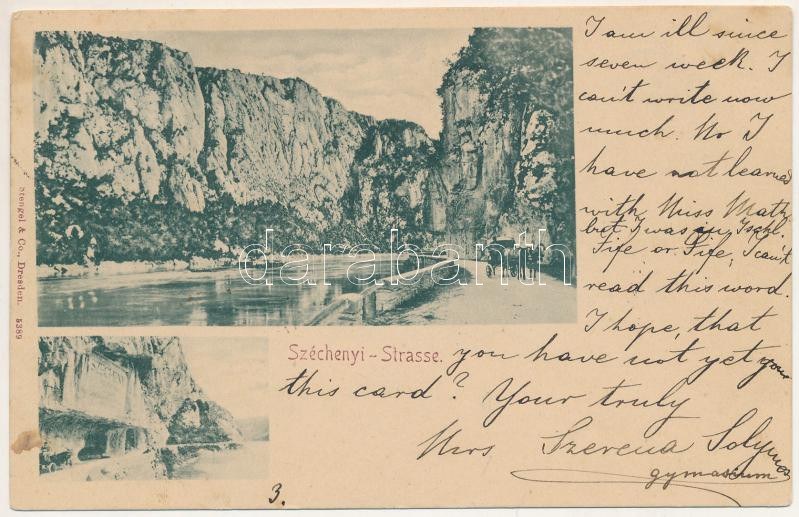 I am ill since
seven week. I
can't write now
much. No I
have not learned
with Miss Math.
but I was in Ischl.
Fife or Life, I can't
read this word.
I hope, that
you have not yet your
this card? Your truly
Mrs Szerena Solymos
gymnasium
Széchenyi-Strasse.
Stengel & Co., Dresden. 5389
3.
darabanth